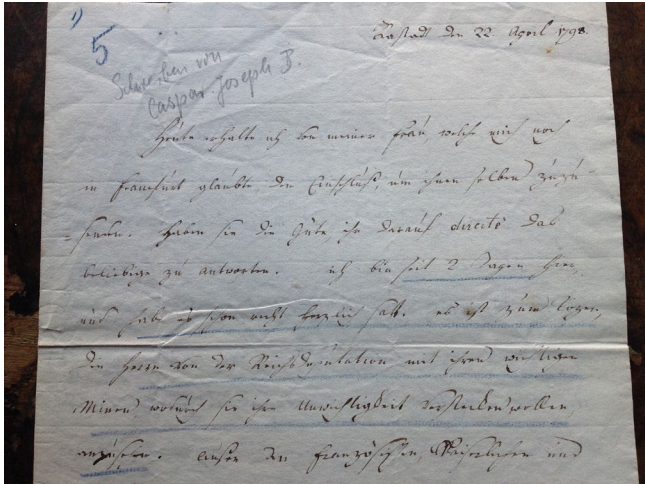 1)
5
Schreiben von
Caspar Joseph B.
Rastadt den 22 April 1798.
Heute erhalte ich von meiner Frau, welche mich noch
in Franckfurt glaubte, den Einschluß, um ihnen selben zuzu-
senden. Haben sie die Güte, ihr darauf directe das
beliebige zu antworten. ich bin seit 2 Tagen hier,
und habe es schon recht herzlich satt. es ist zum
die Herrn von der Reichsdeputation mit ihren wichtigen
Minen wodurch sie ihre Unwichtigkeit verstecken wollen,
anzusehen. ausser den Französischen, Kaiserlichen und